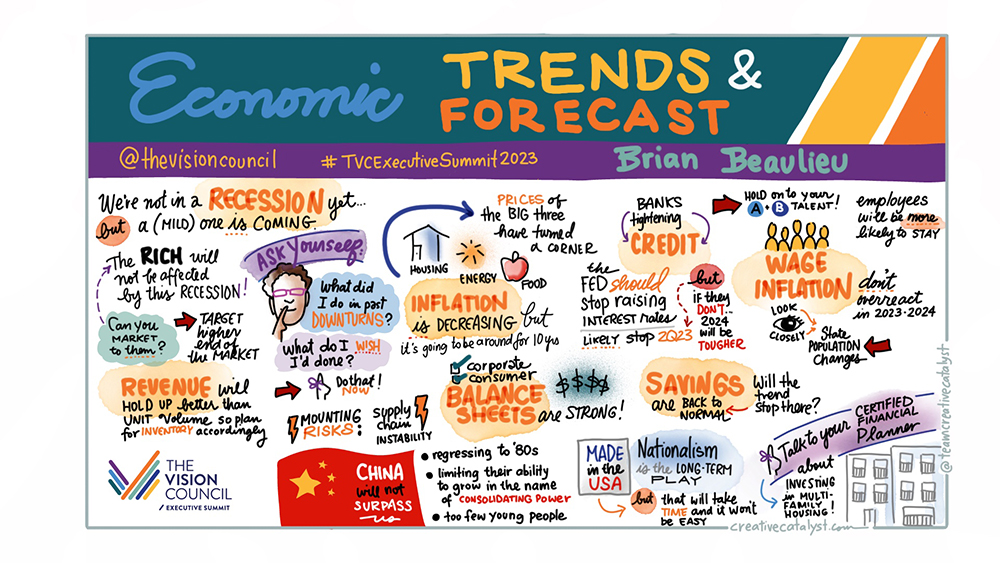 Economic
TRENDS &
FORECAST
@thevisioncouncil
#TVCExecutiveSummit2023
Brian Beaulieu
We're not in a RECESSION yet...
but a (MILD) one is COMING.
The RICH will
not be affected
by this RECESSION!
Can you
MARKET
to them?
TARGET
higher
end of
the MARKET
ASK Yourself:
What did
I do in past
DOWNTURNS?
What do I WISH
I'd done?
Do that!
NOW
REVENUE will
HOLD UP better than
UNIT Volume so plan
for INVENTORY accordingly
MOUNTING
RISKS:
supply
chain
INSTABILITY
PRICES of
the BIG three
have turned
a CORNER
HOUSING
ENERGY
FOOD
INFLATION
is DECREASING but
it's going to be around for 10 yrs
corporate
consumer
BALANCE
SHEETS are STRONG!
$$$$
BANKS
tightening
CREDIT
the
FED should
stop raising
INTEREST rates
LIKELY stop 2Q23
but
if they
DON'T...
2024
will be
TOUGHER
HOLD on to your
A + B TALENT!
employees
will be more
likely to STAY
WAGE
INFLATION
don't
overreact
in 2023-2024
LOOK
CLOSELY
State
POPULATION
Changes
SAVINGS
are BACK to
NORMAL
Will the
trend
stop there?
Talk to your CERTIFIED
FINANCIAL
Planner
about
INVESTING
in MULTI-
FAMILY
HOUSING!
THE
VISION
COUNCIL
/ EXECUTIVE SUMMIT
CHINA
will not
SURPASS
us
• regressing to '80s
• limiting their ability
to grow in the name
of CONSOLIDATING POWER
• too few young people
MADE
in the
USA
Nationalism
is the LONG-TERM
PLAY
but that will take
TIME and it won't
be EASY
creativecatalyst.com
@teamcreativecatalyst